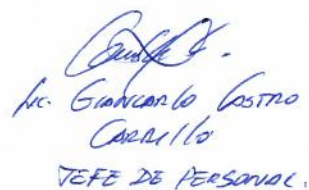 Lic. Giancarlo Castro
Carrillo
JEFE DE PERSONAL.